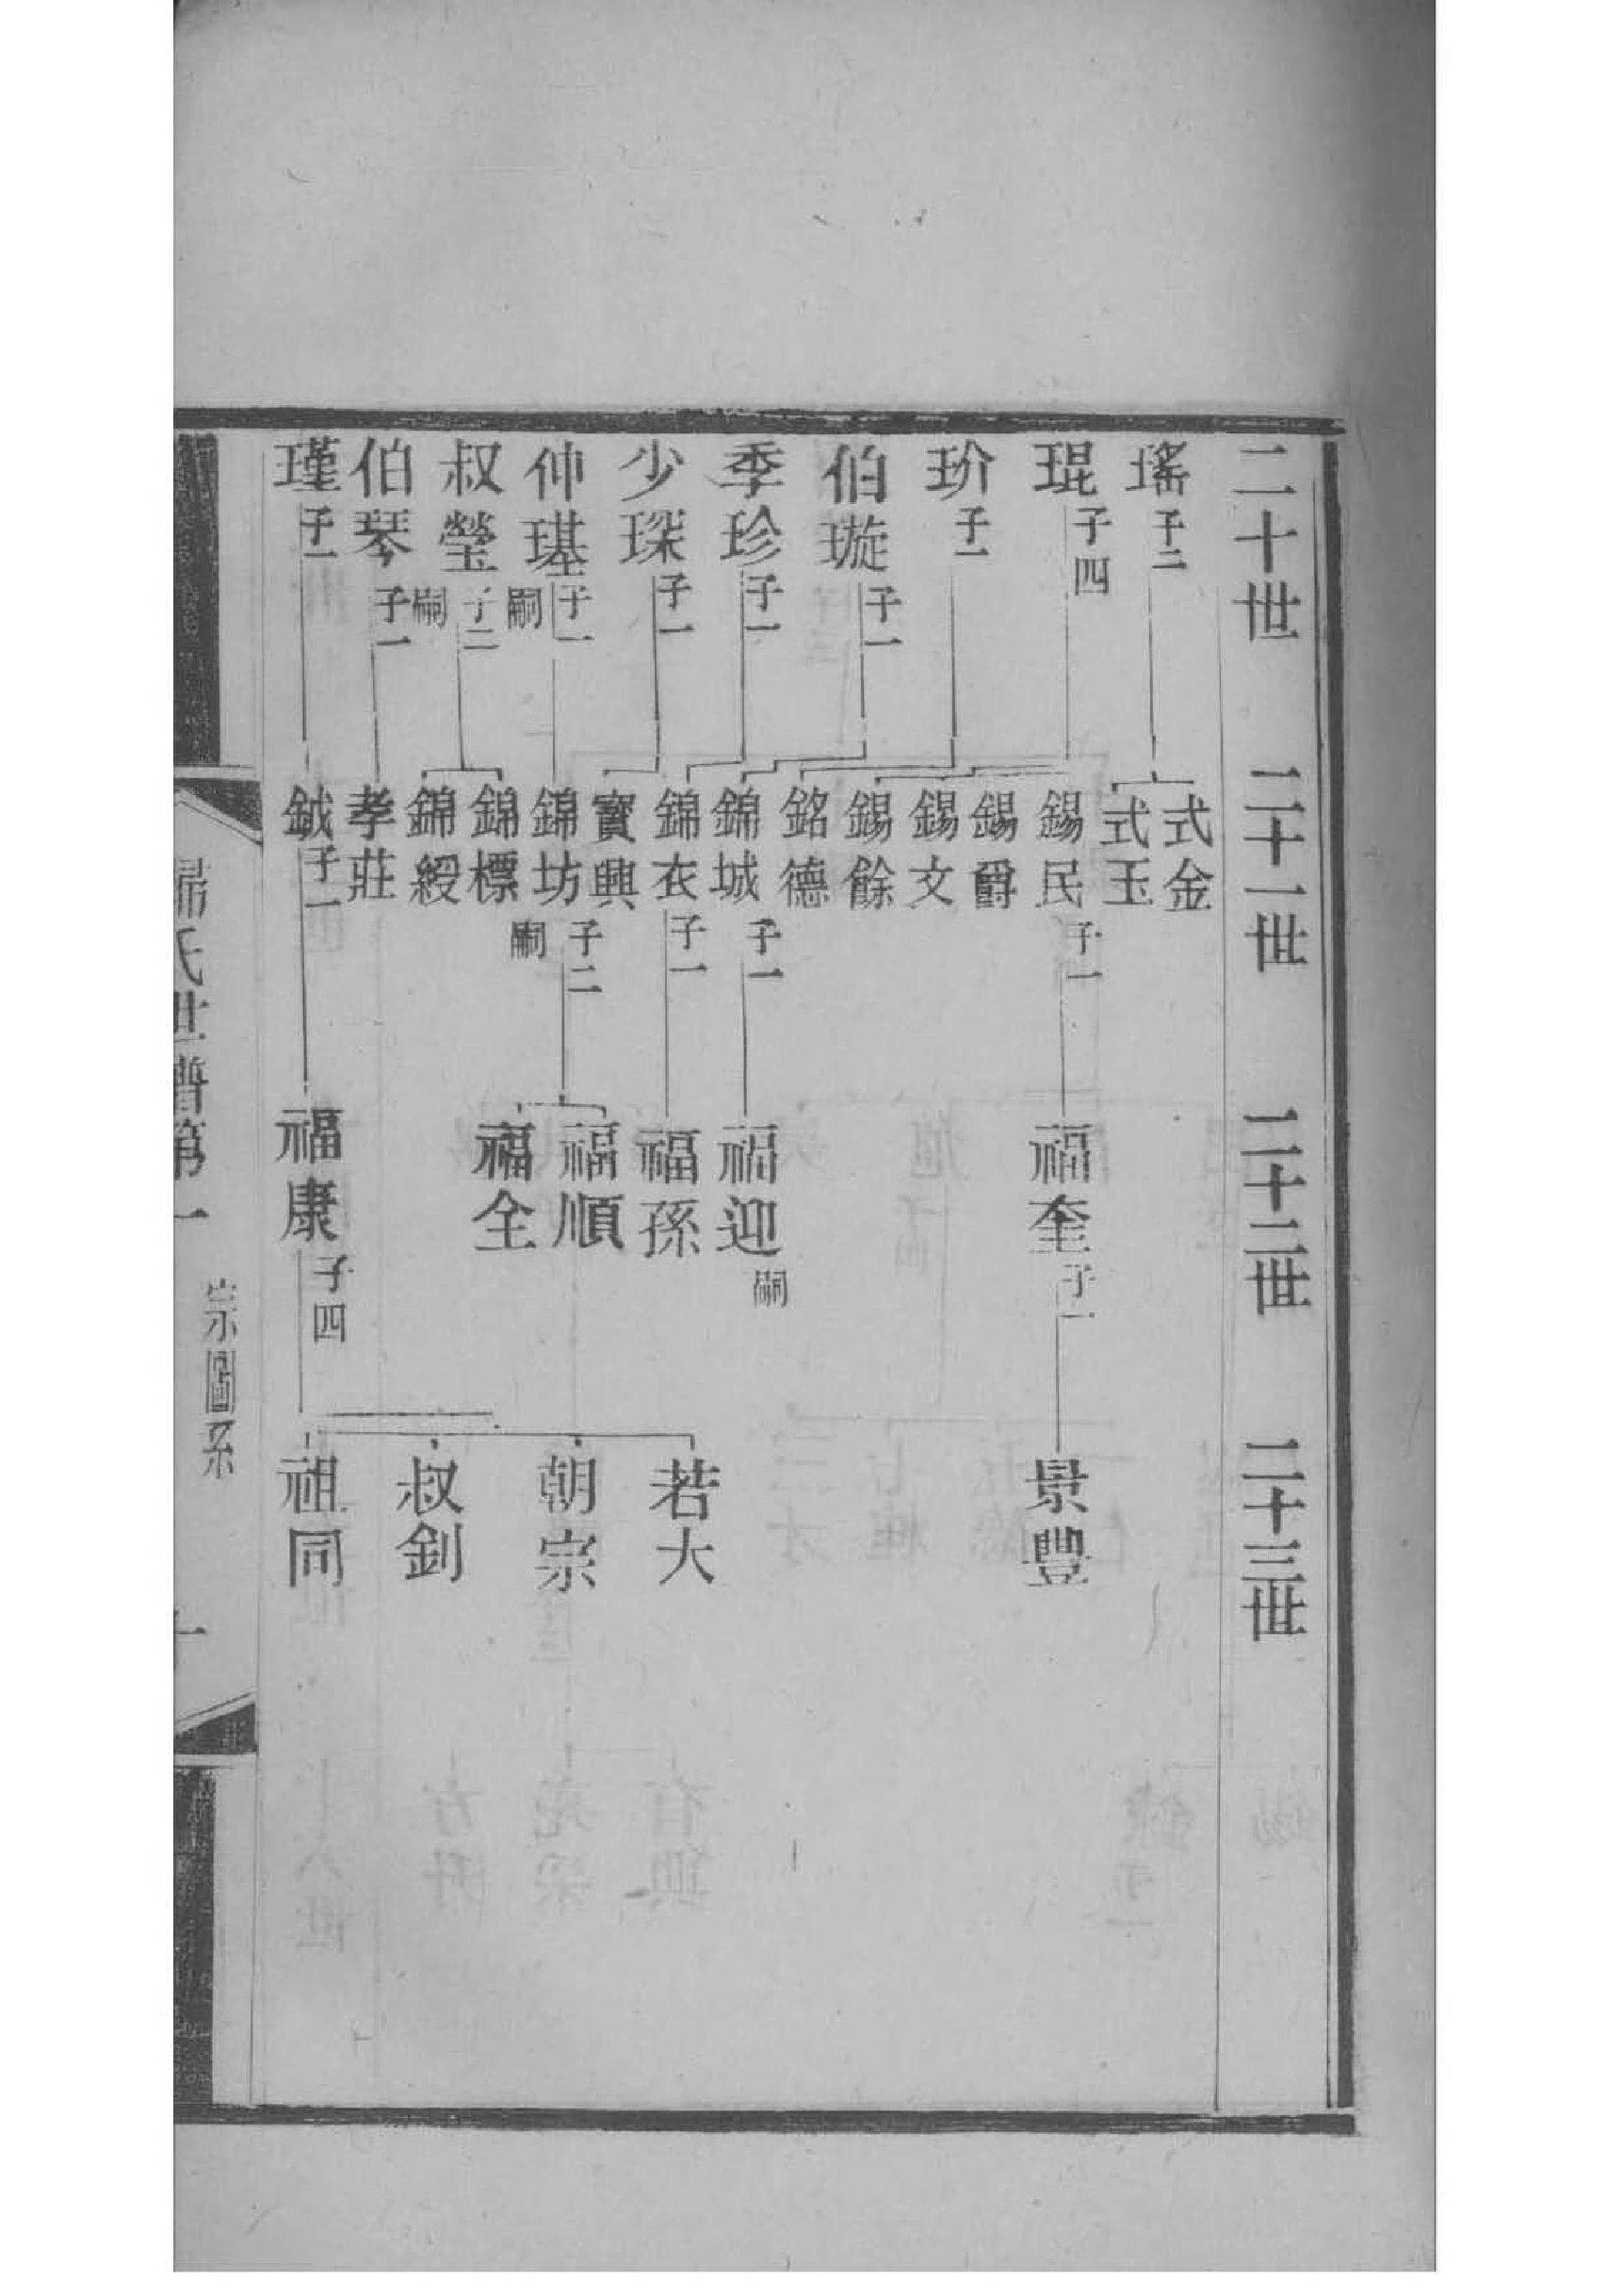 二十世
二十一世
二十二世
二十三世
瑤 子二
琨 子四
玠 子一
伯璇 子一
季珍 子一
少琛 子一
仲璂 子一 嗣
叔瑩 子二 嗣
伯琴 子一
瑾 子一
式金
式玉
錫民 子一
錫爵
錫文
錫餘
銘德
錦城 子一
錦衣 子一
寶興
錦坊 子二 嗣
錦標
錦綬
孝莊
鉞 子一
福奎 子一
福迎 嗣
福孫
福順
福全
福康 子四
景豐
若大
朝宗
叔釗
祖同
歸氏世譜第一
宗圖系